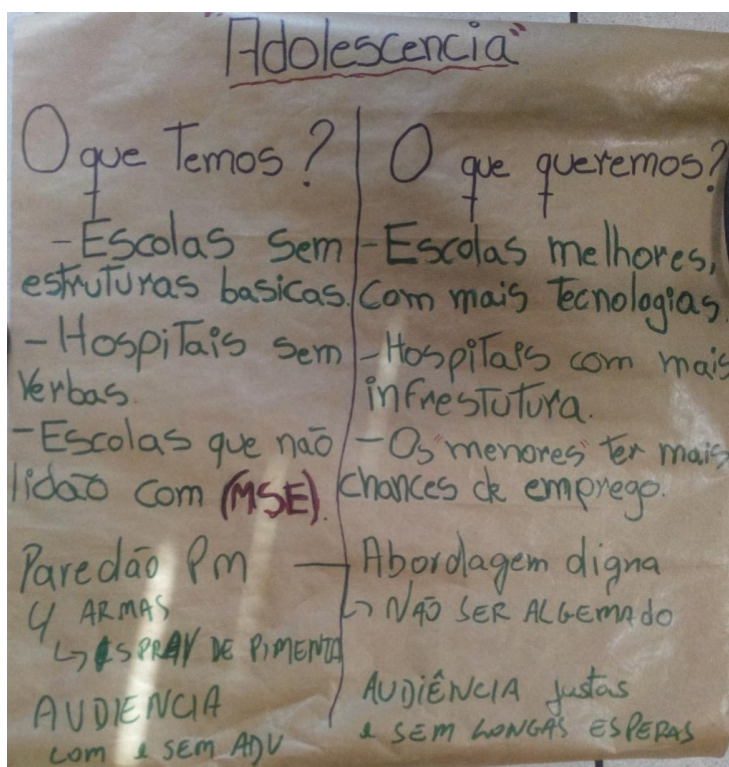 "Adolescencia"
O que Temos?
- Escolas Sem
estruturas basicas.
- Hospitais sem
Verbas.
- Escolas que não
lidão com (MSE).
Paredão Pm
4 ARMAS
↳ SPRAY DE PIMENTA
AUDIENCIA
com e SEM ADV
O que queremos?
- Escolas melhores,
Com mais Tecnologias.
- Hospitais com mais
infrestutura.
- Os "menores" ter mais
chances de emprego.
Abordagem digna
↳ NÃO SER ALGEMADO
AUDIÊNCIA justas
e SEM LONGAS ESPERAS